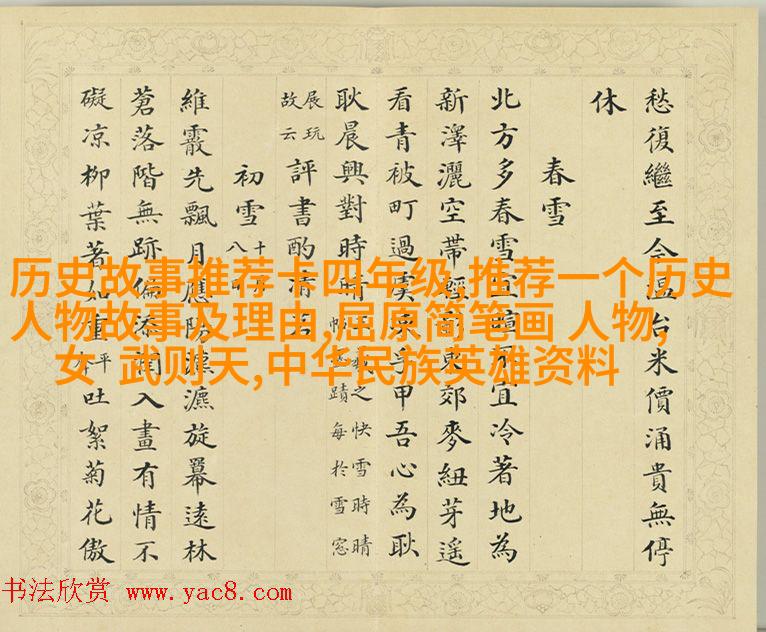 愁復繼至今溫台米價涌貴無停
休
春雪
北方多春雪宜暄不宜冷著地為
新澤灑空帶輕東郊麥紐芽遙
看青被町過孚甲吾心為耿
耿晨興對時晴
羲之快雪時晴
蹟每於雪窓
展玩
故云
評書酌清
初雪
十
八
維霰先飄月應瀌旋冪遠林
蒼落階無跡偏添潤入畫有情不
礙凉柳葉著如重
平
本
吐絮菊花傲
历史故事推荐卡四年级,推荐一个历史
人物故事及理由,屈原简笔画 人物,
女 武则天,中华民族英雄资料
书法欣赏 www.yac8.com